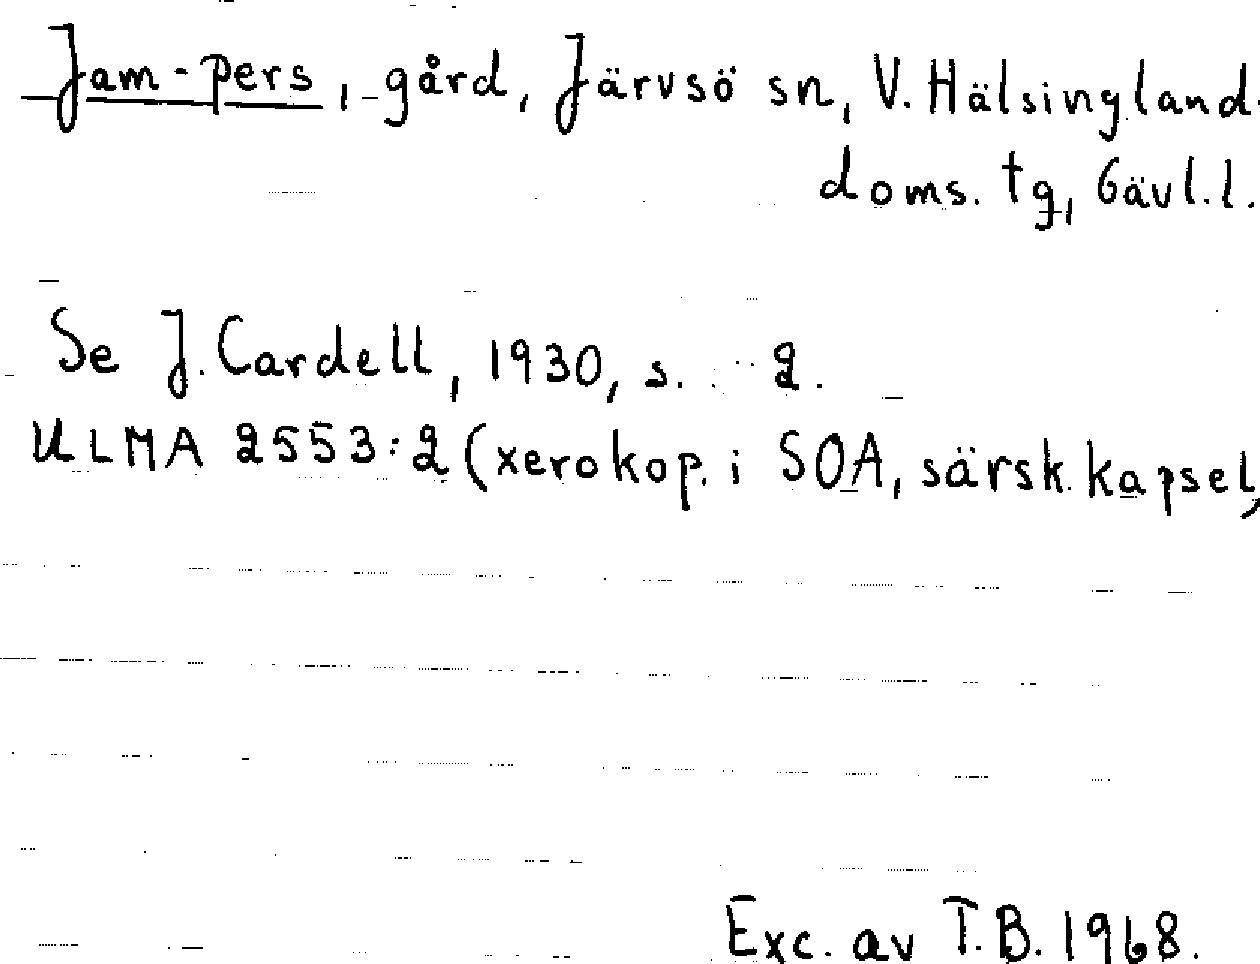 Jam-pers, gård, Järvsö sn, V. Hälsingland
doms. tg, Gävl. l.
Se J. Cardell, 1930, s. 2.
ULMA 2553:2 (xerokop. i SOA, särsk. kapsel,
Exc. av T.B. 1968.